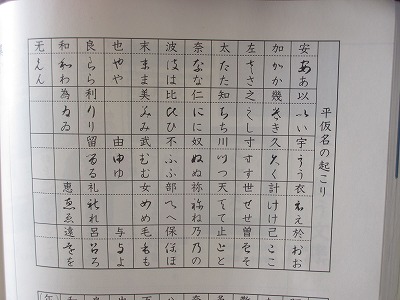 平仮名の起こり
安ああ 以いい 宇うう 衣ええ 於おお
加かか 幾きき 久くく 計けけ 己ここ
左ささ 之しし 寸すす 世せせ 曽そそ
太たた 知ちち 川つつ 天てて 止とと
奈なな 仁にに 奴ぬぬ 祢ねね 乃のの
波はは 比ひひ 不ふふ 部へへ 保ほほ
末まま 美みみ 武むむ 女めめ 毛もも
也やや 由ゆゆ 与よよ
良らら 利りり 留るる 礼れれ 呂ろろ
和わわ 為ゐゐ 恵ゑゑ 遠をを
无んん